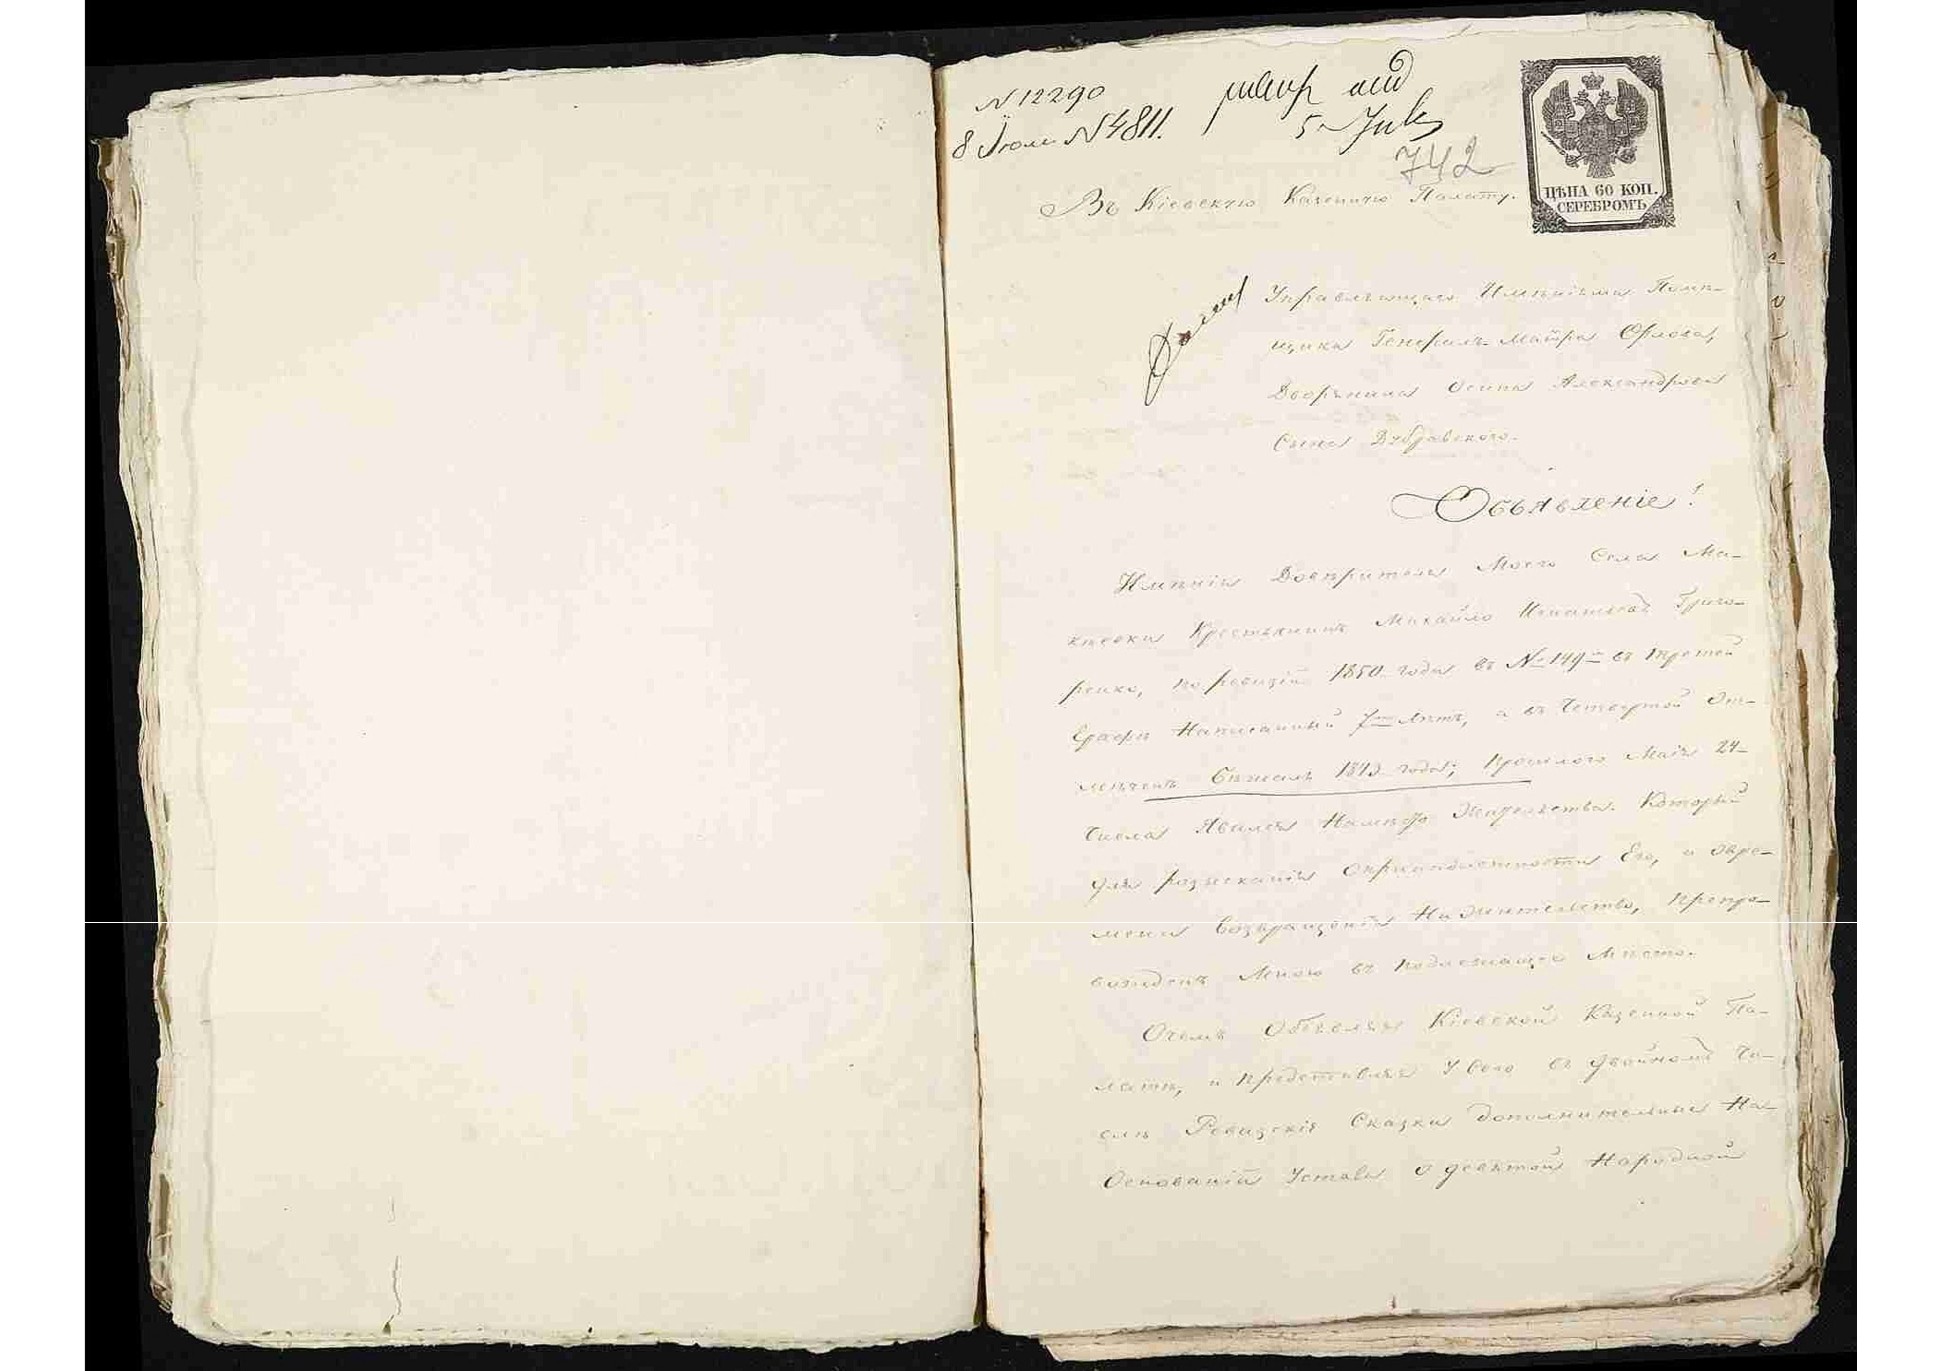 N 12290
8 Іюля N 4811.
5 July
742
ЦѢНА 60 КОП.
СЕРЕБРОМЪ
Въ Кіевскую Казенную Палату.
Управляющаго Имѣніемъ Помѣ-
щика Генералъ-Маіора Орлова,
Дворянина Осипа Александрова
Сына Дубравскаго.
Объявленіе!
Имѣнія Довѣрителя Моего Села Ма-
кѣевки Крестьянинъ Михайло Игнатьевъ Григо-
ренко, по ревизіи 1850 года въ № 149 въ третей
Графѣ Написанный 7 лѣтъ, а въ Четвертой От-
мѣченъ Бѣжалъ 1843 года; прошлого Маія 24
Числа Явился На мѣсто Жительства. Который
для розысканія о принадлежности Его, и
мени возвращенія На жительство, препро-
вожденъ Мною въ подлежащее Мѣсто.
О чемъ Объявляя Кіевской Казенной Па-
латѣ, и представляя У сего въ двойномъ Чи-
слѣ Ревизскія Сказки дополнительные На
Основаніи Устава о девятой Народной